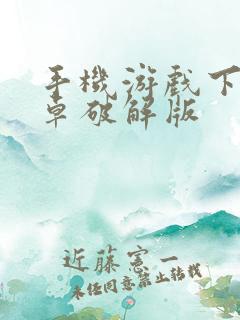 手機游戲下
卓破解版
近藤憲一
未经同意禁止转载